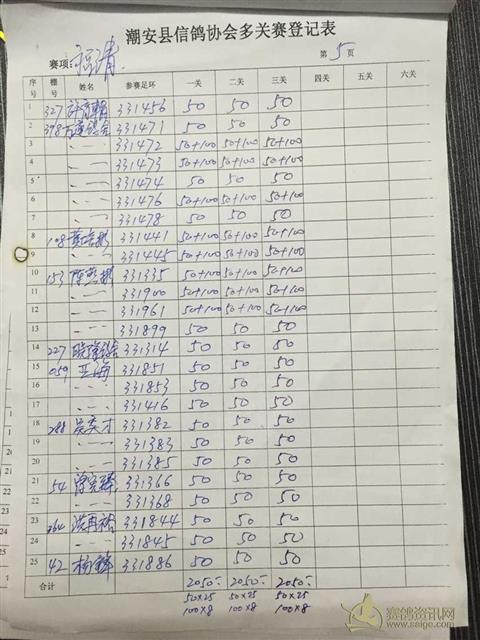 潮安县信鸽协会多关赛登记表
赛项: 福清 第 5 页
序号 棚号 姓名 参赛足环 一关 二关 三关 四关 五关 六关
1 327 331456 50 50 50
2 378 331471 50 50 50
3 331472 50+100 50+100 50+100
4 331473 50+100 50+100 50+100
5 331474 50 50 50
6 331476 50+100 50+100 50+100
7 331478 50 50 50
8 108 331441 50+100 50+100 50+100
9 331445 50+100 50+100 50+100
10 153 331335 50+100 50+100 50+100
11 331900 50+100 50+100 50+100
12 331961 50+100 50+100 50+100
13 331899 50 50 50
14 227 331314 50 50 50
15 059 331851 50 50 50
16 331853 50 50 50
17 331416 50 50 50
18 288 吴英才 331382 50 50 50
19 331383 50 50 50
20 331385 50 50 50
21 54 331366 50 50 50
22 331368 50 50 50
23 264 331844 50 50 50
24 331845 50 50 50
25 42 杨锋 331886 50 50 50
合计 2050 2050 2050
50x25 50x25 50x25
100x8 100x8 100x8
赛鸽资讯网
www.saige.com